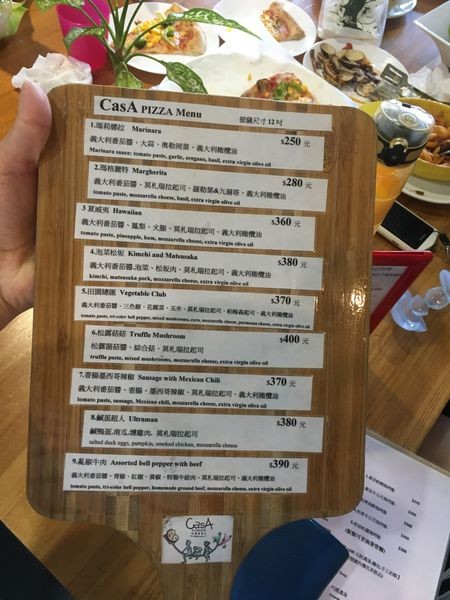 CasA PIZZA Menu
披薩尺寸 12 吋
1.瑪莉娜拉 Marinara
$250 元
義大利番茄醬、大蒜、奧勒岡葉、義大利橄欖油
Marinara sauce: tomato paste, garlic, oregano, basil, extra virgin olive oil
2.瑪格麗特 Margherita
$280 元
義大利番茄醬、莫札瑞拉起司、羅勒葉&九層塔、義大利橄欖油
tomato paste, mozzarella cheese, basil, extra virgin olive oil
3 夏威夷 Hawaiian
$360 元
義大利番茄醬、鳳梨、火腿、莫札瑞拉起司、義大利橄欖油
tomato paste, pineapple, ham, mozzarella cheese, extra virgin olive oil
4.泡菜松坂 Kimchi and Matsusaka
$380 元
義大利番茄醬.泡菜、松坂肉、莫札瑞拉起司、義大利橄欖油
kimchi, matsusaka pork, mozzarella cheese, extra virgin olive oil
5.田園總匯 Vegetable Club
$370 元
義大利番茄醬、三色椒、花椰菜、玉米、莫札瑞拉起司、帕梅森起司、義大利橄欖油
tomato paste, tri-color bell pepper, mixed mushrooms, corn, mozzarella cheese, parmesan cheese, extra virgin olive oil
6.松露菇菇 Truffle Mushroom
$400 元
松露菌菇醬、綜合菇、莫札瑞拉起司
truffle paste, mixed mushrooms, mozzarella cheese, extra virgin olive oil
7.香腸墨西哥辣椒 Sausage with Mexican Chili
$370 元
義大利番茄醬、香腸、墨西哥辣椒、莫札瑞拉起司、義大利橄欖油
tomato paste, sausage, Mexican chili, mozzarella cheese, extra virgin olive oil
8.鹹蛋超人 Ultraman
$380 元
鹹鴨蛋.南瓜.燻雞肉. 莫札瑞拉起司
salted duck eggs, pumpkin, smoked chicken, mozzarella cheese
9.亂椒牛肉 Assorted bell pepper with beef
$390 元
義大利番茄醬、青椒、紅椒、黃椒、特製牛絞肉、莫札瑞拉起司、義大利橄欖油
tomato paste, tri-color bell pepper, homemade ground beef, mozzarella cheese, extra virgin olive oil
CasA